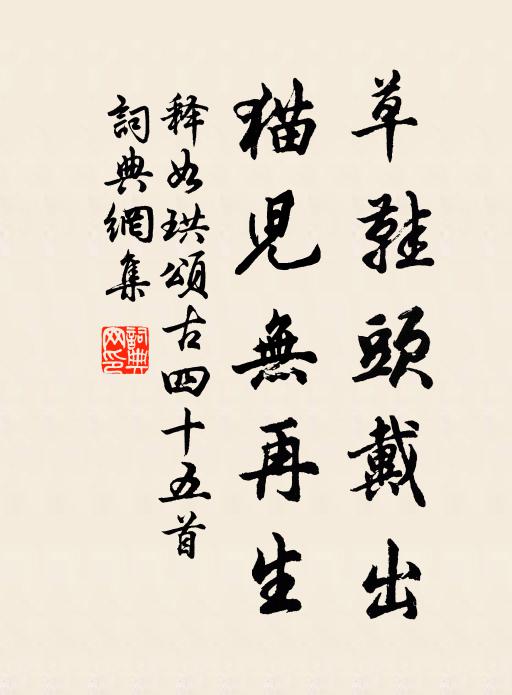 草鞋頭戴出
猫兒無再生
释如珙頌古四十五首
詞典網集
詞典
网印